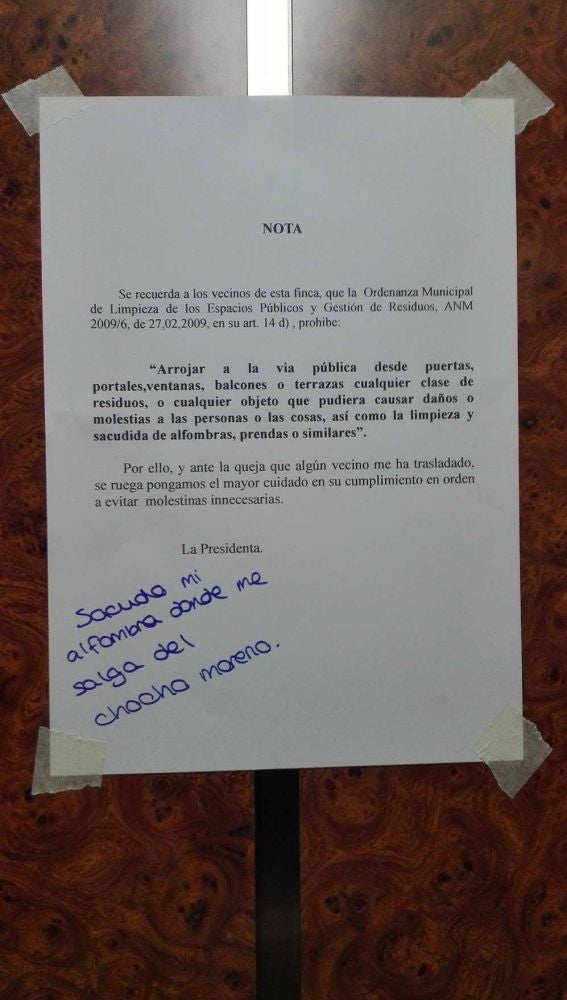 NOTA
Se recuerda a los vecinos de esta finca, que la Ordenanza Municipal
de Limpieza de los Espacios Públicos y Gestión de Residuos, ANM
2009/6, de 27,02,2009, en su art. 14 d) , prohibe:
“Arrojar a la via pública desde puertas,
portales,ventanas, balcones o terrazas cualquier clase de
residuos, o cualquier objeto que pudiera causar daños o
molestias a las personas o las cosas, así como la limpieza y
sacudida de alfombras, prendas o similares”.
Por ello, y ante la queja que algún vecino me ha trasladado,
se ruega pongamos el mayor cuidado en su cumplimiento en orden
a evitar molestinas innecesarias.
La Presidenta.
Sacudo mi
alfombra donde me
salga del
chocho moreno.